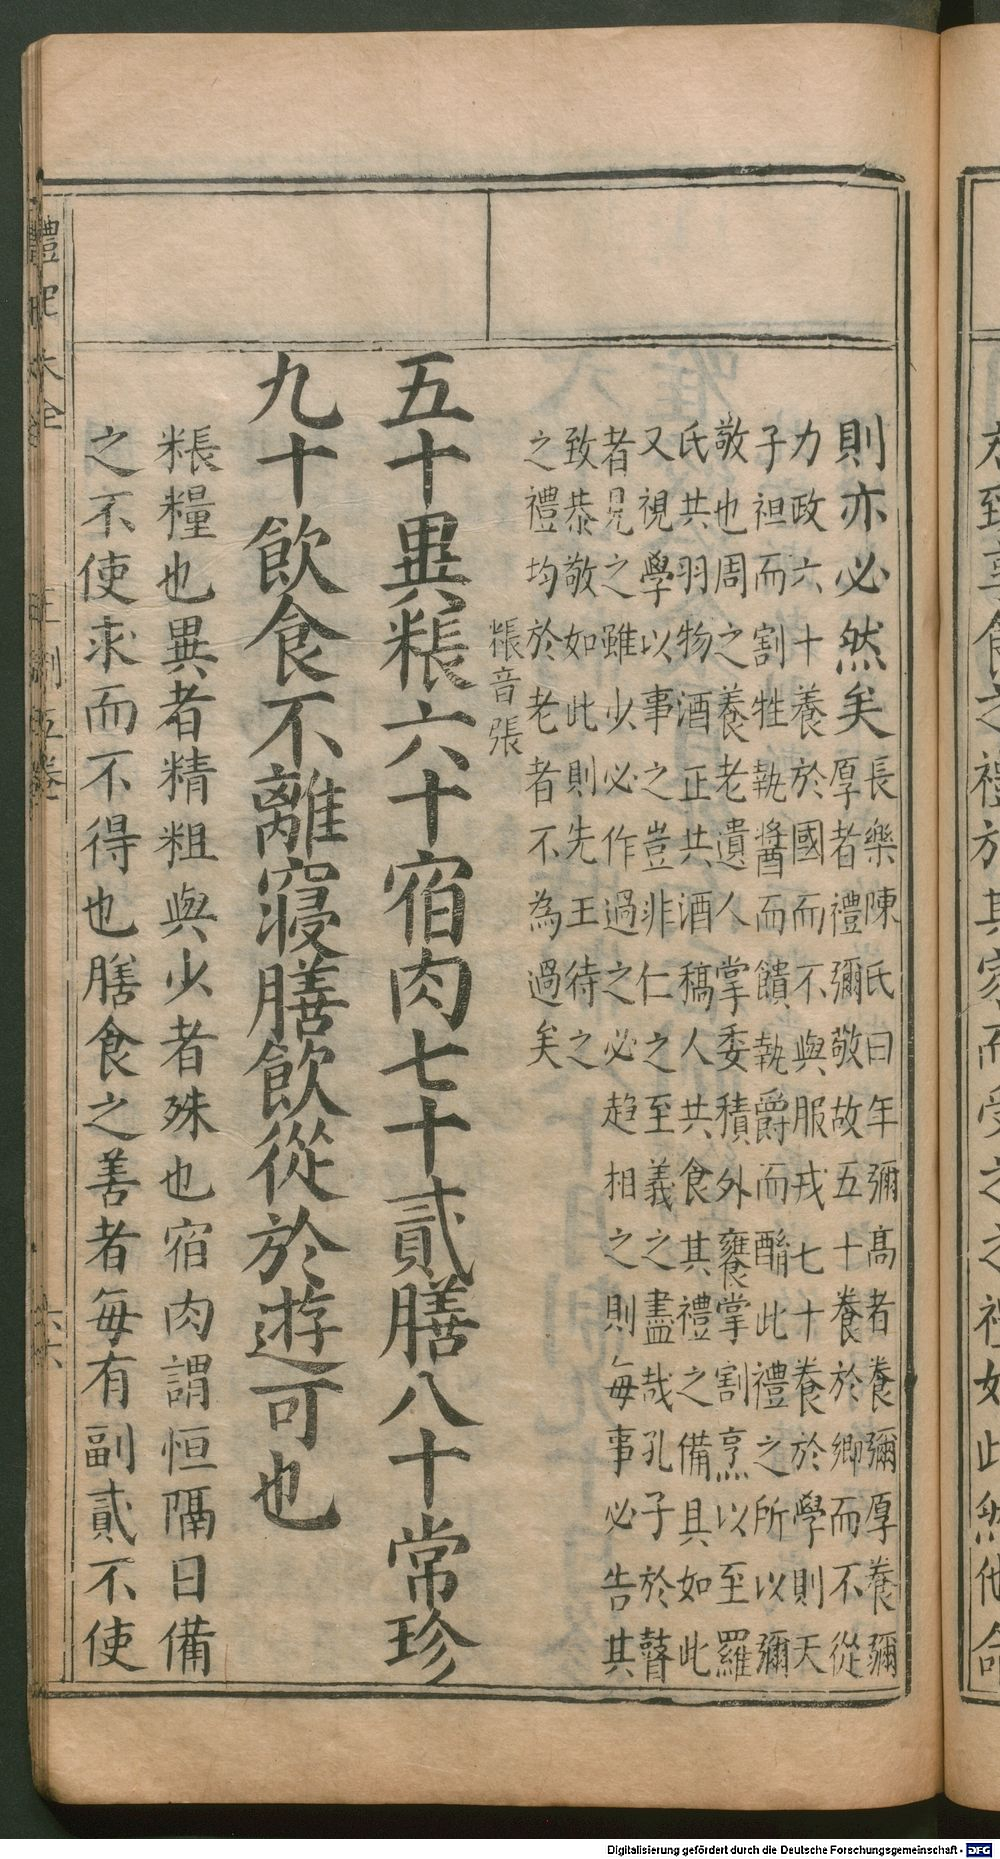 則亦必然矣
長樂陳氏曰年彌高者養彌厚養彌
厚者禮彌敬故五十養於鄉而不從
力政六十養於國而不與服戎七十養於學則天
子袒而割牲執醬而饋執爵而酳此禮之所以彌
敬也周之養老遺人掌委積外饔掌割烹以至羅
氏共羽物酒正共酒稿人共食其禮之備具如此
又視學以事之豈非仁之至義之盡哉孔子於瞽
者見之雖少必作過之必趋相之則每事必告其
致恭敬如此則先王待之
之禮均於老者不為過矣
粻音張
五十異粻六十宿肉七十貳膳八十常珍
九十飲食不離寢膳飲從於遊可也
粻糧也異者精粗與少者殊也宿肉謂恒隔日備
之不使求而不得也膳食之善者每有副貳不使
禮記大全
王制五卷
Digitalisierung gefördert durch die Deutsche Forschungsgemeinschaft - DFG